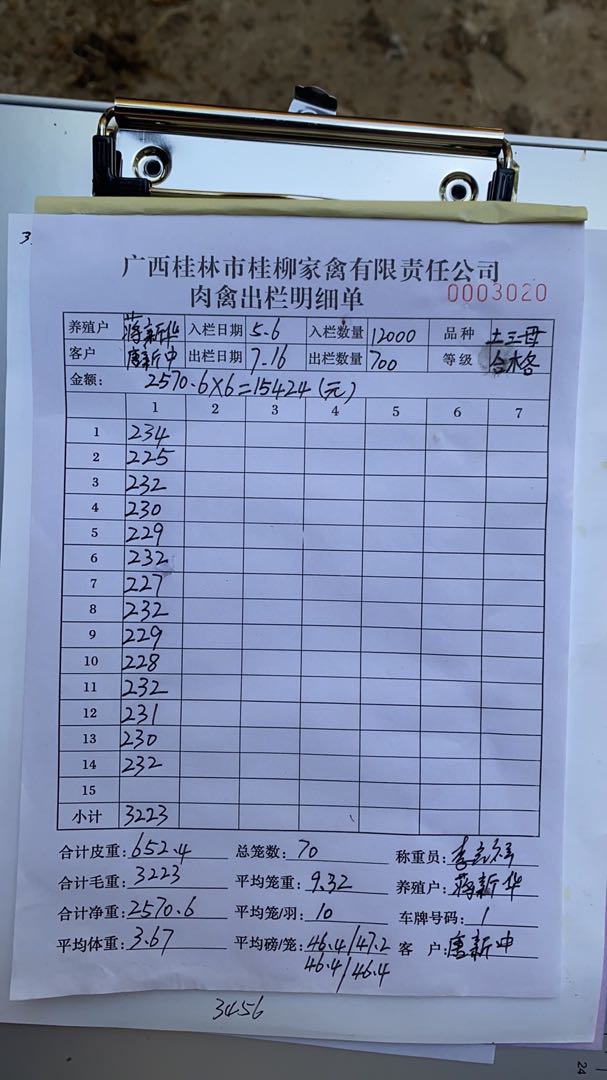 3
广西桂林市桂柳家禽有限责任公司
肉禽出栏明细单 0003020
养殖户 蒋新华 入栏日期 5.6 入栏数量 12000 品种 土三母
客户 唐新冲 出栏日期 7.16 出栏数量 700 等级 合格
金额: 2570.6×6=15424(元)
1 2 3 4 5 6 7
1 234
2 225
3 232
4 230
5 229
6 232
7 227
8 232
9 229
10 228
11 232
12 231
13 230
14 232
15
小计 3223
合计皮重: 652.4 总笼数: 70 称重员:
合计毛重: 3223 平均笼重: 9.32 养殖户: 蒋新华
合计净重: 2570.6 平均笼/羽: 10 车牌号码: 1
平均体重: 3.67 平均磅/笼: 46.4/47.2 客 户: 唐新冲
46.4/46.4
3456
24